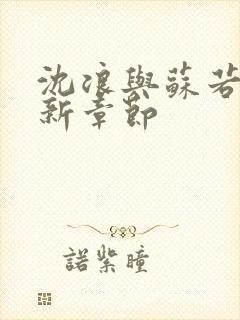 沈浪與蘇若
新章節
諾紫瞳